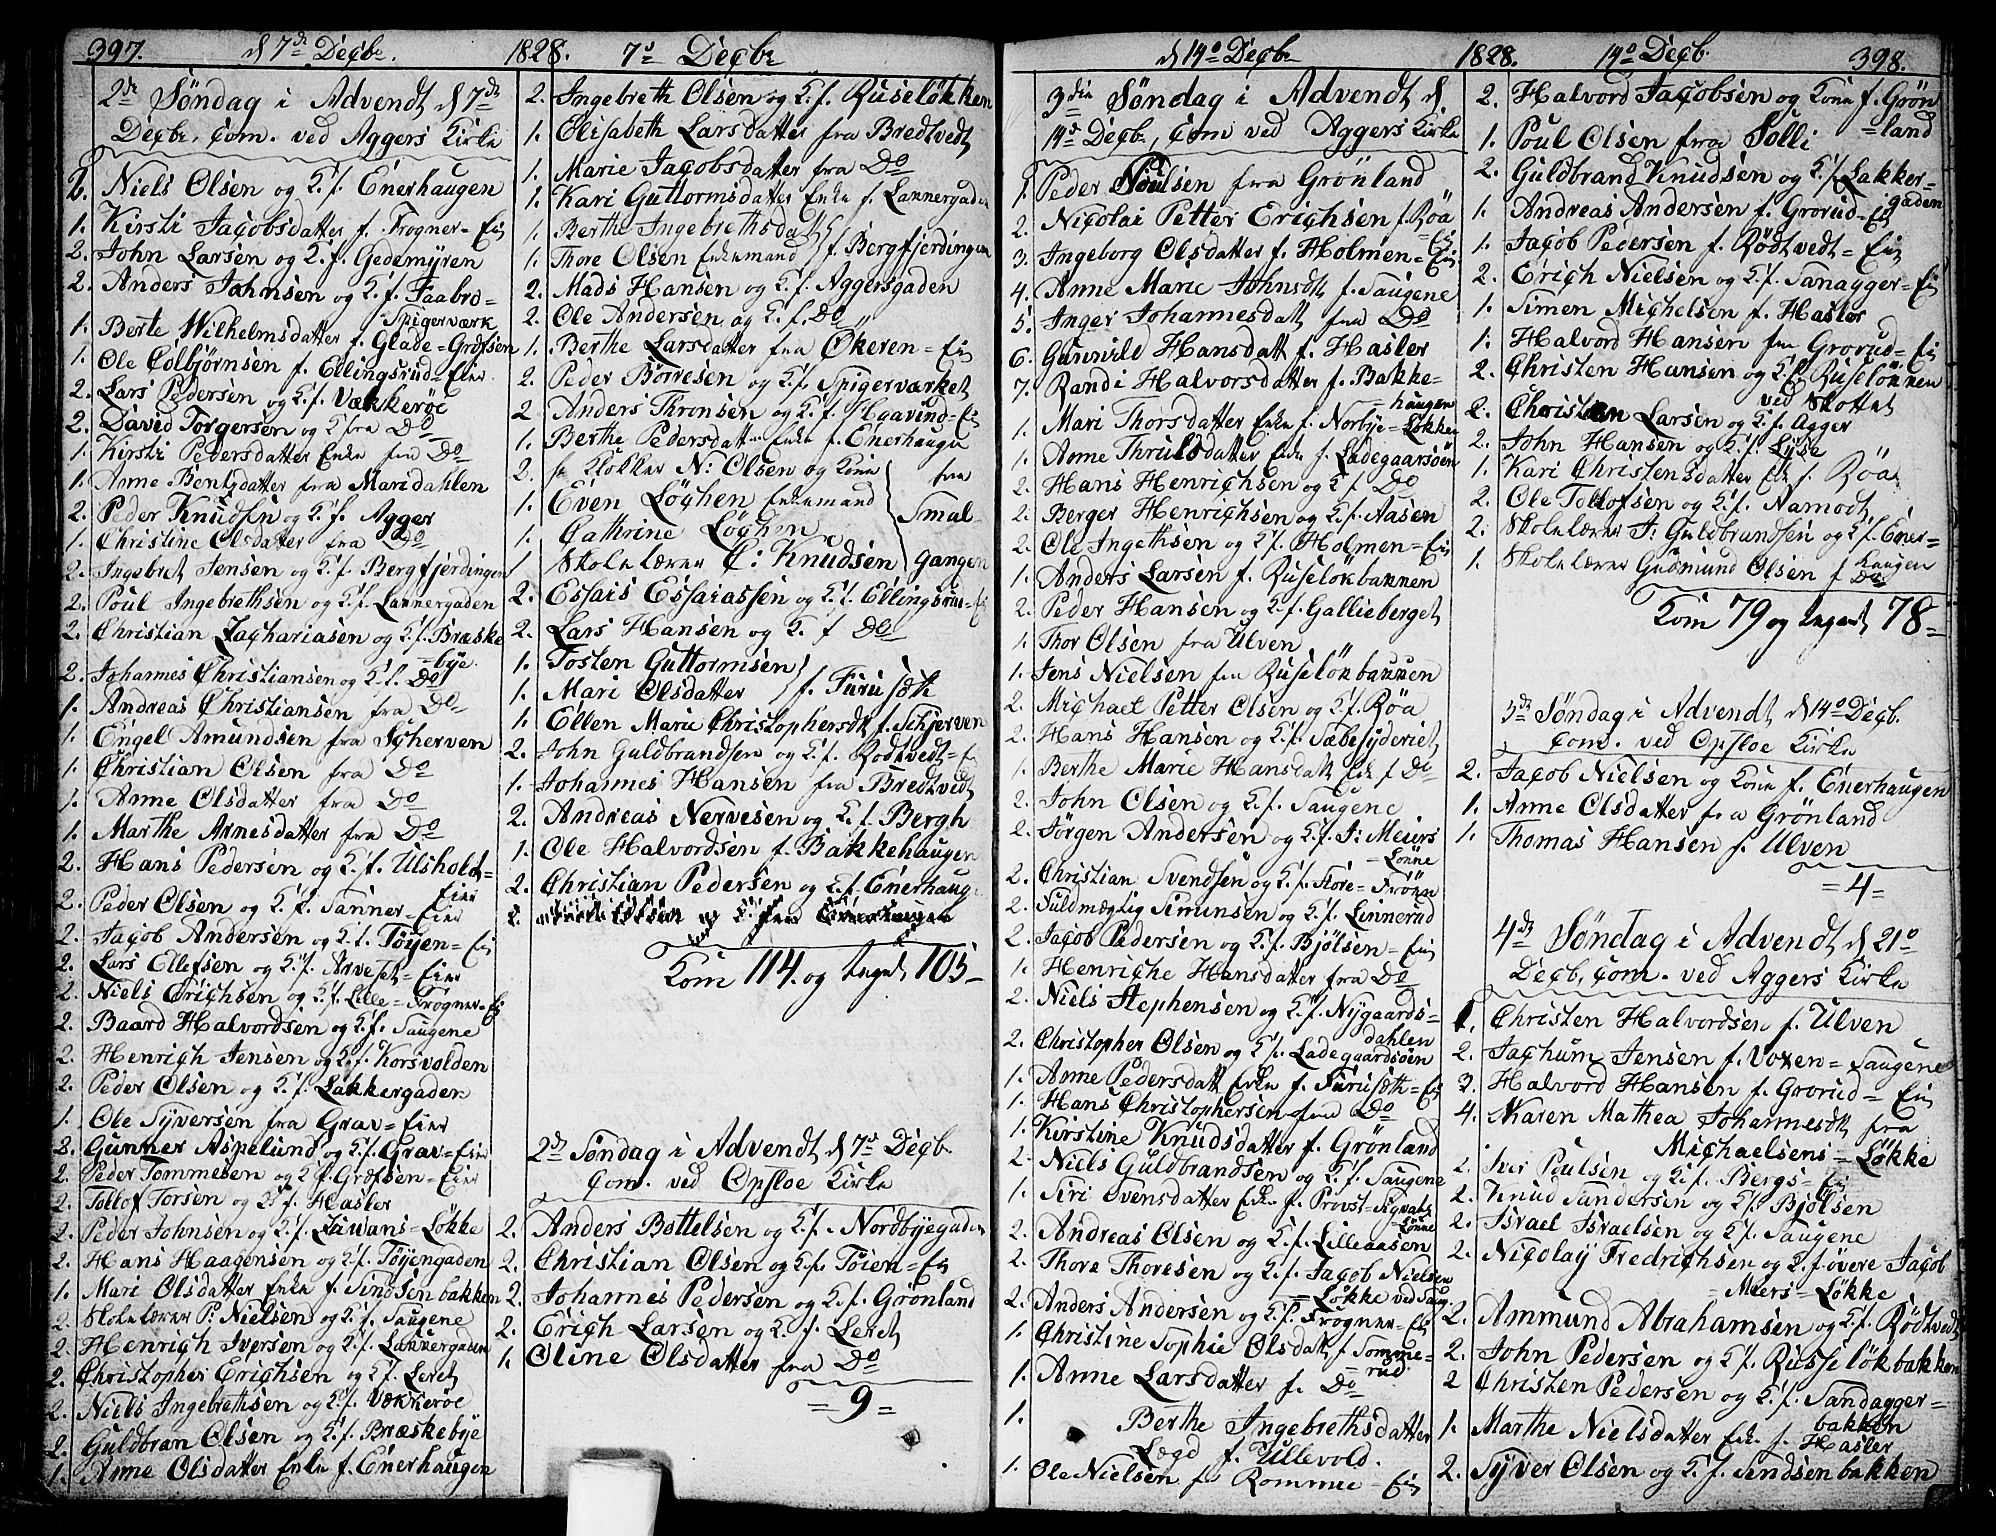 397. d 7de Deçbr. 1828. 7de Deçbr
2de Søndag i Advendt d 7de
Deçbr, Com. ved Aggers Kirke
2. Niels Olsen og K. f. Enerhaugen
1. Kirsti Jaçobsdatter f. Frogner-Eie
2. John Larsen og K. f. Gedemyren
2. Anders Jahnsen og K. f. Faabro-
Spigerværk
1. Berte Wilhelmsdatter f. Glade-Grøfsen
1. Ole Colbjørnsen f. Ellingsrud-Eier
2. Lars Pedersen og K. f. Vækkerøe
2. David Torgersen og K fra Do
1. Kirsti Pedersdatter Enke fra Do
1. Anne Bentsdatter fra Maridahlen
2. Peder Knudsen og K. f. Agger
1. Christine Olsdatter fra Do
2. Ingebret Jensen og K. f. Bergfjerdingen
2. Poul Ingebrethsen og K. f. Lannergaden
2. Christian Zachariasen og K. f. Bræske
=bye.
2. Johannes Christiansen og K. f. Do
1. Andreas Christiansen fra Do
1. Engel Amundsen fra Scherven
1. Christian Olsen fra Do
1. Anne Olsdatter fra Do
1. Marthe Arnesdatter fra Do
2. Hans Pedersen og K. f. Ulsholt-
Eier
2. Peder Olsen og K. f. Tanner-Eier
2. Jaçob Andersen og K. f. Tøyen-Eie
2. Lars Ellefsen og K. f. Arveset-Eier
2. Niels Erichsen og K. f. Lille-Frogner-Eie
2. Baard Halvordsen og K. f. Saugene
2. Henrich Jensen og K. f. Korsvolden
2. Peder Olsen og K. f. Lakkergaden
1. Ole Syversen fra Grav-Eier
2. Gunner Aspelund og K. f. Grav-Eier
2. Peder Tommesen og K f. Grøfsen-Eier
2. Tollof Torsen og K. f. Hasler
2. Peder Johnsen og K. f. Lawans-Løkke
2. Hans Haagensen og K. f. Tøyengaden
1. Mari Olsdatter Enke f. Sindsenbakken
2. Skolelærer P. Nielsen og K. f. Saugene
2. Henrich Iversen og K. f. Lakkergaden
2. Christopher Erichsen og K f. Leret
2. Niels Ingebrethsen og K. f. Vækkerøe
2. Guldbran Olsen og K. f. Bræskebye
1. Anne Olsdatter Enke f. Enerhaugen
2. Ingebreth Olsen og K. f. Ruseløkken
1. Elisabeth Larsdatter fra Bredtvedt
1. Marie Jaçobsdatter fra Do
1. Kari Guttormsdatter Enke f. Lannergaden
1. Berthe Ingebrethsdatt
1. Thore Olsen Enkemand f. Bergfjerdingen
2. Mads Hansen og K. f. Aggersgaden
2. Ole Andersen og K. f. Do
1. Berthe Larsdatter fra Økeren-Eie
2. Peder Børresen og K. f. Spigerværket
2. Anders Thronsen og K. f. Haavind-Eie
1. Berthe Pedersdatter Enke f. Enerhaugen
2. hr Klokker N: Olsen og Kone
1. Even Løchen Enkemand
1. Cathrine Løchen
1. Skolelærer C: Knudsen
fra Smal-gangen
2. Essais Essaiassen og K. f. Ellingsrud-Eie
2. Lars Hansen og K. f Do
1. Tosten Guttormsen
1. Mari Olsdatter f. Furusæth
1. Ellen Marie Christophersdt f. Schjerven
2. John Guldbrandsen og K. f. Rødtvedt-E
1. Johannes Hansen fra Bredtvedt
2. Andreas Nervesen og K. f. Bergh
1. Ole Halvordsen f. Bakkehaugen
2. Christian Pedersen og K. f. Enerhaug
Kom 114. og Ingen 105-
2de Søndag i Advendt d 7de Deçbr
Com. ved Opsloe Kirke
2. Anders Bottelsen og K. f. Nordbyegaden
2. Christian Olsen og K. f. Tøien-Eie
2. Johannes Pedersen og K. f. Grønland
2. Erich Larsen og K. f. Leret
1. Oline Olsdatter fra Do
=9=
d 14de Deçbr 1828. 14de Deçb. 398.
3die Søndag i Advendt d.
14de Deçbr, Com ved Aggers Kirke
1. Peder Poulsen fra Grønland
2. Nicolai Petter Erichsen f. Røa
=Eie
3. Ingeborg Olsdatter f. Holmen-Eie
4. Anne Marie Johnsdt f. Saugene
5. Inger Johannesdatt fra Do
6. Gunnild Hansdatt f. Hasler
7. Randi Halvorsdatter f. Bakke=
haugen
1. Mari Thorsdatter Enke f. Norbye-Løkken
1. Anne Thrulsdatter Enke f. Ladegaarsøen
2. Hans Henrichsen og K f Do
2. Berger Henrichsen og K. f. Aasen
2. Ole Ingethsen og K. f. Holmen-Eie
1. Anders Larsen f. Ruseløkbakken
2. Peder Hansen og K. f. Gallieberget
1. Thor Olsen fra Ulven
1. Jens Nielsen fra Ruseløkbakken
2. Michael Petter Olsen og K f. Røa
2. Hans Hansen og K. f. Sæbesyderiet
1. Berthe Marie Hansdatt Enke f Do
2. John Olsen og K. f. Saugene
2. Jørgen Andersen og K. f. J: Meiers
=Lønne
2. Christian Svendsen og K. f. Store-Frøen
2. Fuldmægtig Simensen og K. f. Linnerud
2. Jaçob Pedersen og K. f. Bjølsen-Eie
1. Henriche Hansdatter fra Do
2. Niels Stephensen og K. f. Nygaards=
dahlen
2. Christopher Olsen og K. f. Ladegaardsøen
1. Anne Pedersdatt Enke f. Furusæth-Eie
1. Hans Christophersen fra Do
1. Kirstine Knudsdatter f. Grønland
2. Niels Guldbrandsen og K. f. Saugene
1. Siri Svensdatter Enke f. Provst Sigvals
=Lønne
2. Andreas Olsen og K. f. Lilleaasen
2. Thore Thoresen og K. f. Jaçob Nielsen
=Løkke ved Saug.
2. Anders Andersen og K. f. Frogner-Eie
1. Christine Sophie Olsdatt f Somme=
rud
1. Anne Larsdatter f. Do
1. Berthe Ingebrethsdatter
Lægd f. Ullevold.
1. Ole Nielsen fr Rommen-Eie
2. Halvord Jaçobsen og Kone f. Grøn
=land
1. Poul Olsen fra Solli
2. Guldbrand Knudsen og K. f. Lakker=
gaden
1. Andreas Andersen f. Grorud-Eie
1. Jaçob Pedersen f. Rødtvedt=Eie
2. Erich Nielsen og K. f. Sanagger=Eie
1. Simen Michelsen f. Hasler
1. Halvord Hansen fra Grorud-Eie
2. Christen Hansen og K f. Ruseløkken
ved Skottet
2. Christen Larsen og K. f. Agger
2. John Hansen og K. f. Lyse
1. Kari Christensdatter Enk f. Røa
2. Ole Tollofsen og K. f. Namodt
2. Skolelærer J: Guldbrandsen og K. f. Ener=
haugen
1. Skolelærer Gudmund Olsen f Do
Kom 79 og Ingen 78=
3de Søndag i Advendt d 14de Deçb.
Com. ved Opsloe Kirke
2. Jaçob Nielsen og Kone f. Enerhaugen
1. Anne Olsdatter fra Grønland
1. Thomas Hansen f. Ulven
=4=
4de Søndag i Advendt d 21de
Deçb, Com. ved Aggers Kirke
1. Christen Halvordsen f. Ulven
2. Jachum Jensen f. Voxen=Saugene
3. Halvord Hansen f. Grorud=Eie
4. Karen Mathea Johannesdt fra
Michaelsens=Løkke
2. Iver Poulsen og K. f. Bergs-Eie
2. Knud Sandersen og K. f. Bjølsen
2. Israel Israelsen og K. f. Saugene
2. Nicolay Fredrichsen og K. f øvere Jacob
=Meiers=Løkke
2. Ammund Abrahamsen og K. f. Rødtvedt
2. John Pedersen og K. f. Russeløkbakken
2 Christen Pedersen og K. f. Sandagger=
bakken
1. Marthe Nielsdatter Enke f. Hasler
2. Syver Olsen og K. f. Sindsenbakken